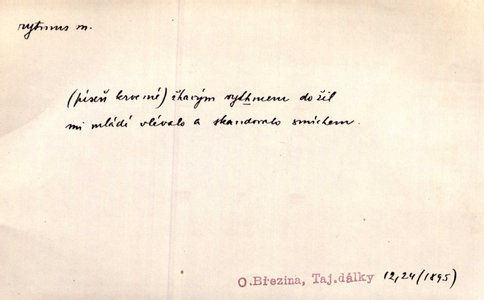 rytmus m.
(píseň krve mé) žhavým rythmem do žil
mi mládí vlévalo a skandovalo smíchem.
O.Březina, Taj.dálky 12,24 (1895)